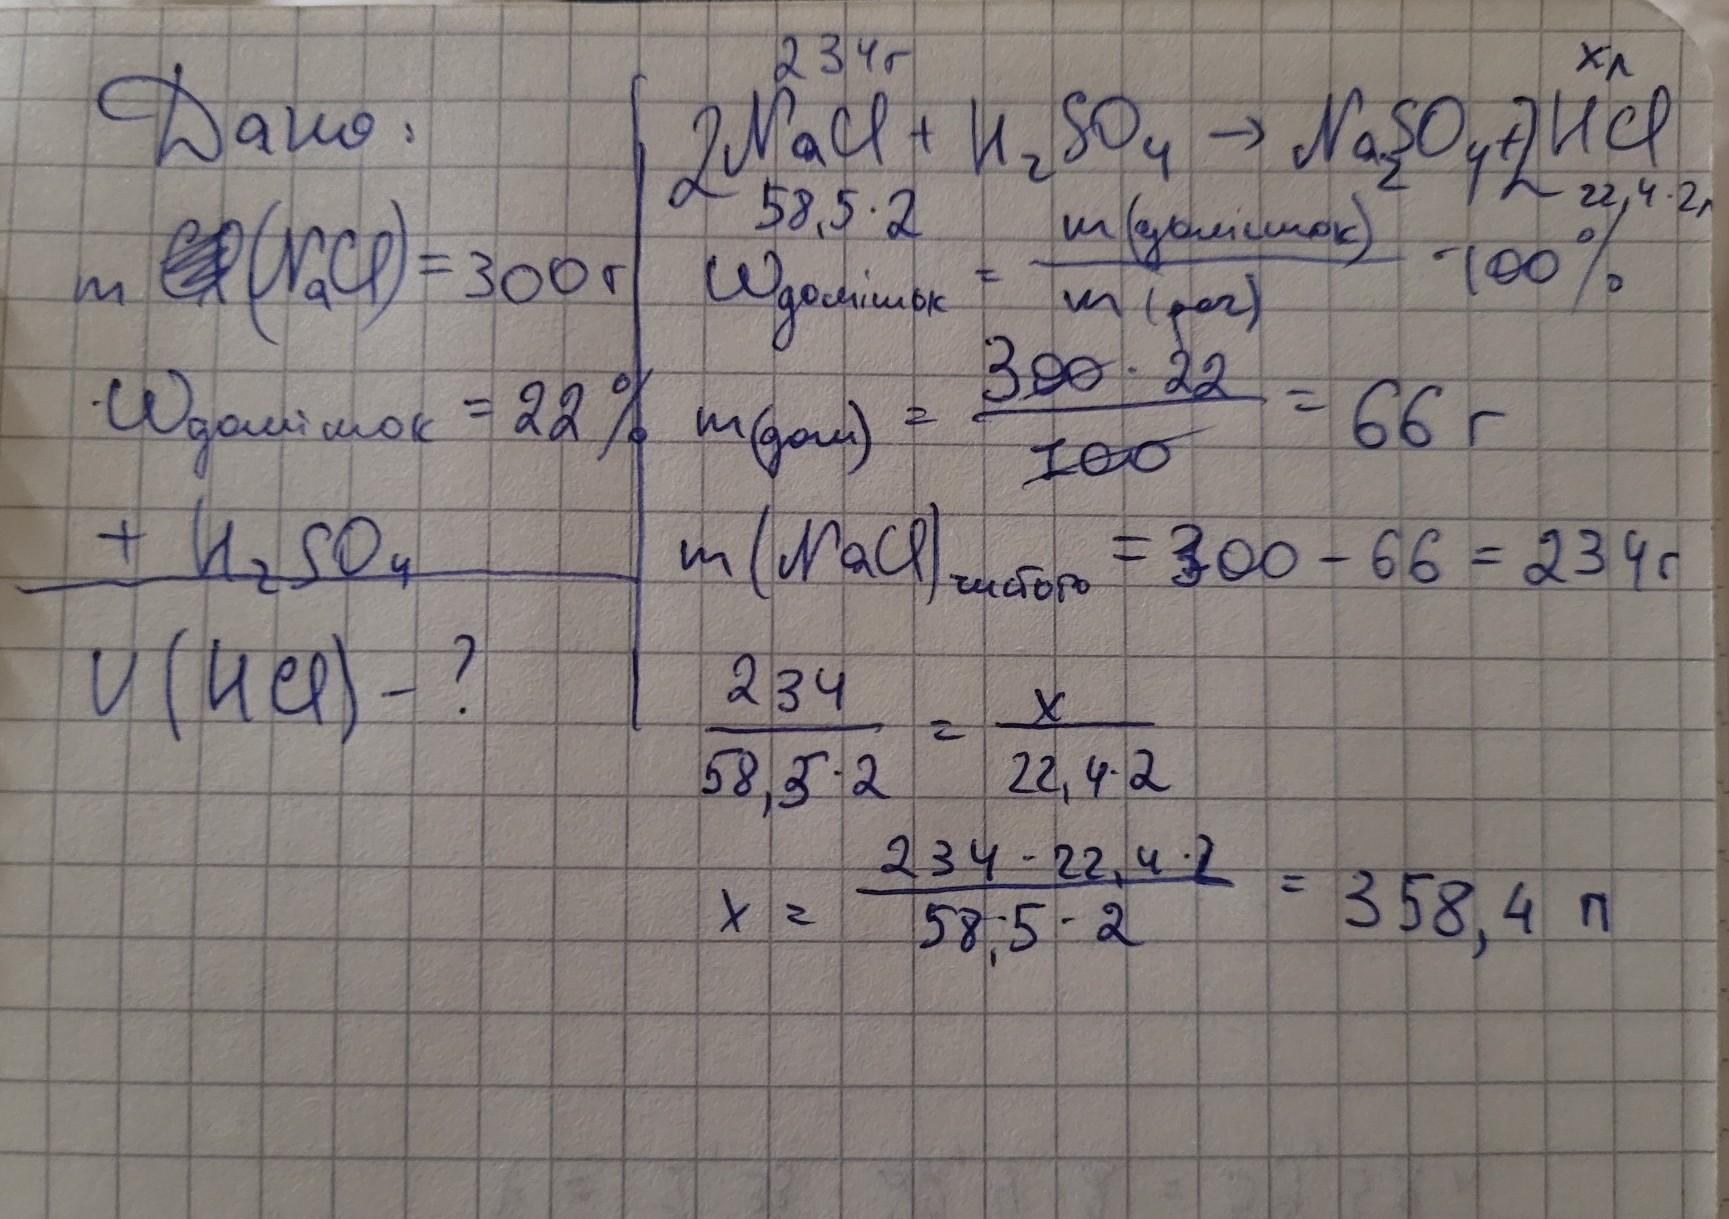 Дано:
m (NaCl) = 300 г
Wдомішок = 22 %
+ H₂SO₄
V (HCl) - ?
234г xл
2NaCl + H₂SO₄ → Na₂SO₄ + 2HCl
58,5·2 22,4·2л
Wдомішок = m(домішок) / m(реч) · 100 %
m(дом) = 300 · 22 / 100 = 66 г
m (NaCl) чистого = 300 - 66 = 234г
234 / 58,5·2 = x / 22,4·2
x = 234 · 22,4 · 2 / 58,5 · 2 = 358,4 л